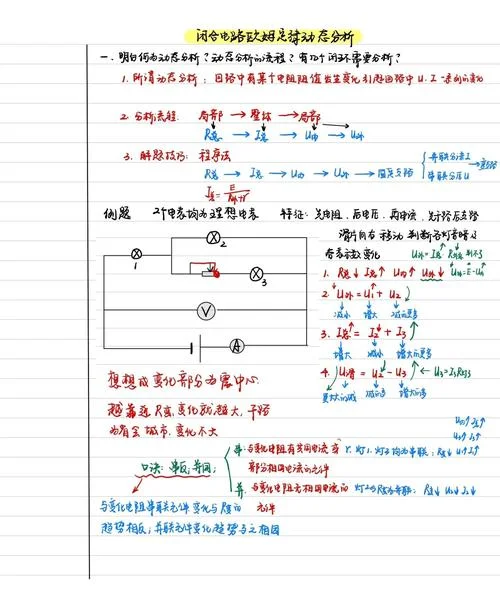 闭合电路欧姆定律动态分析
一、明白何为动态分析？动态分析的流程？有几个问题需要分析？
1. 所谓动态分析：回路中有某个电阻阻值发生变化引起回路中U、I一系列的变化
2. 分析流程 局部 → 整体 → 局部
R总 → I总 → U内 → U外
3. 解题技巧：程序法
R总 → I总 → U内 → U外 → 固定支路
并联分流I
串联分压U
→变路
I总=
例题 2个电表均为理想电表 特征：先电阻，后电压，再电流，先干路后支路
滑片向右移动 判断各灯音暗以
各表示数变化
U外=E-U内
1. R总↓ I总↑ U内↑ U外↓
2. U外=U1+U2
减小 增大 减的更多
3. I总=I2+I3
增大 减小 增大的更多
4. U滑=U2-U3 ← U3=I3R灯3
1
2
3
V
A
想想成变化部分为震中心
越靠近R变，变化就越大，干路
为省会城市，变化不大
口诀：串反，并同
串：与变化电阻有共同电流或
部分相同电流的元件
灯1，灯3均为串联：R总↓ U↑ I↑
并：与变化电阻无相同电流的
元件
灯2与R为并联：R总↓ U↓ I↓
与变化电阻串联元件变化与R总的
趋势相反，并联元件变化趋势与之相同